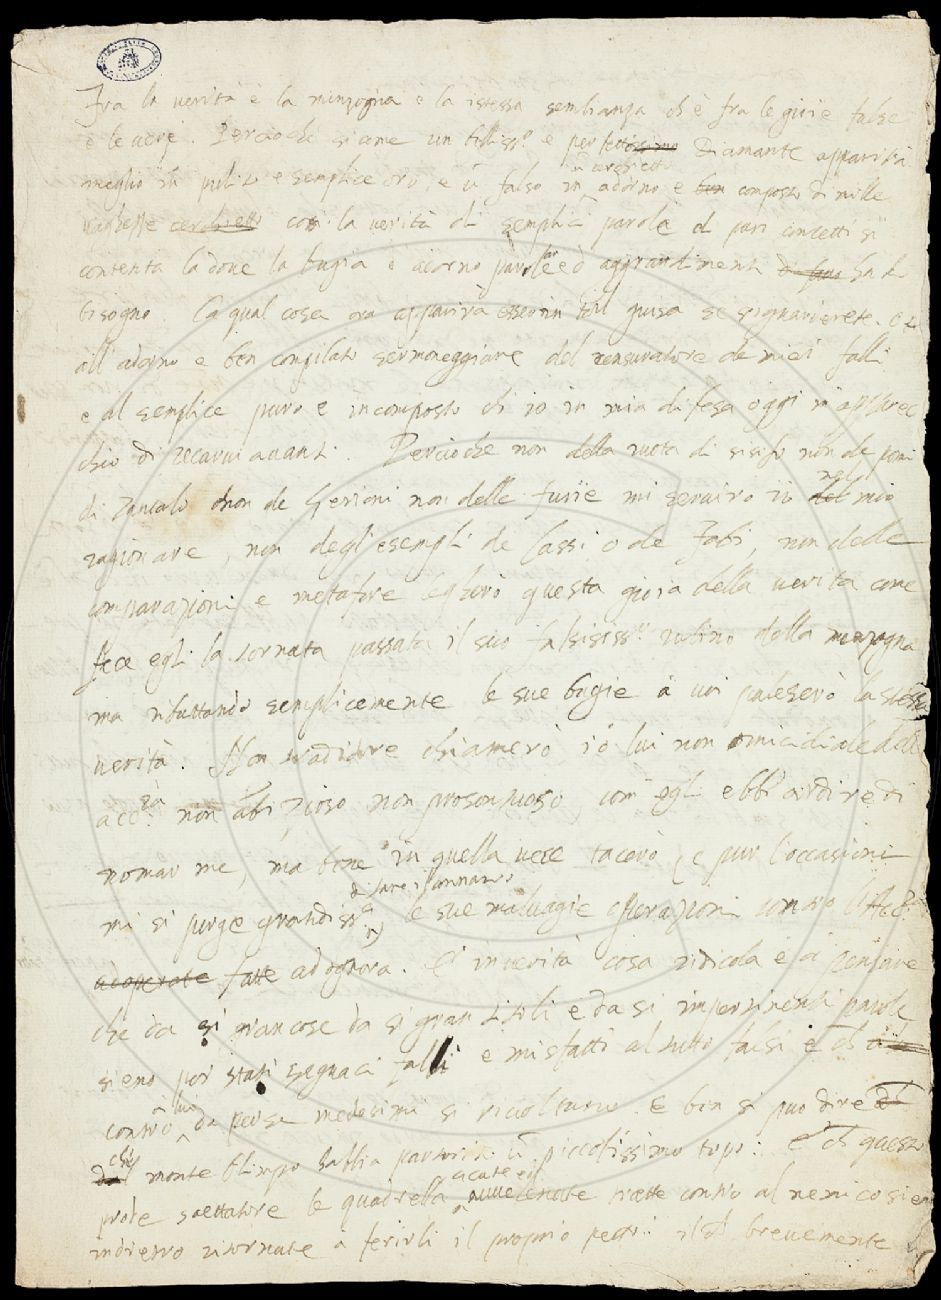 Fra la verità e la menzogna è la istessa sembianza ch'è fra le gioie false
e le vere. Percioche siame un belliss.º e perfettissimo Diamante apparirà
meglio in pulito e semplice oro, e ũ falso in adorno e ben composto di mille
vaghezze cerchietto così la verità di semplici parole et puri concetti si
contenta la dove la bugia è adorno parlare ed aggrandimenti ha di
bisogno. La qual cosa ora apparirà essere in tal guisa se riguarderete
all'adorno e ben compilato sermoneggiare del censuratore de miei falli
e al semplice puro e incomposto ch'io in mia difesa oggi m'apparec
chio di recarvi avanti. Percioche non della ruota di sisifo non de pomi
di Tantalo non de Gerioni non delle furie mi servirò io nel mio
ragionare, non degli esempli de Cassi o de Fabi, non delle
comparazioni e metafore legherò questa gioia della verità come
fece egli la tornata passata il suo falsissº rubino della menzogna
ma ributtando semplicemente le sue bugie à voi paleserò la stessa
verità. Non traditore chiamerò io lui non omicidiale dell
non prosontuoso, com'egli ebbe ardire di
nomar me, ma bene in quella vece tacerò, e pur l'occasione
di fare il
mi si porge grandissª, le sue malvagie operazioni contro
adoperate fatte adognora. E' in verità cosa ridicola è à pensare
che da si gran cose da si gran titoli e da si impertinenti parole
sieno poi stati segnati falli e misfatti al tutto falsi e
contro lui da perse medesimi si rivoltano. E ben si può dire
che monte Olimpo habbia partorito ũ piccolissimo topo: e questo
acute ed
prode saettatore le quadrella avvelenate tratte contro al nemico sien
indietro ritornate a ferirli il proprio petto: il brevemente